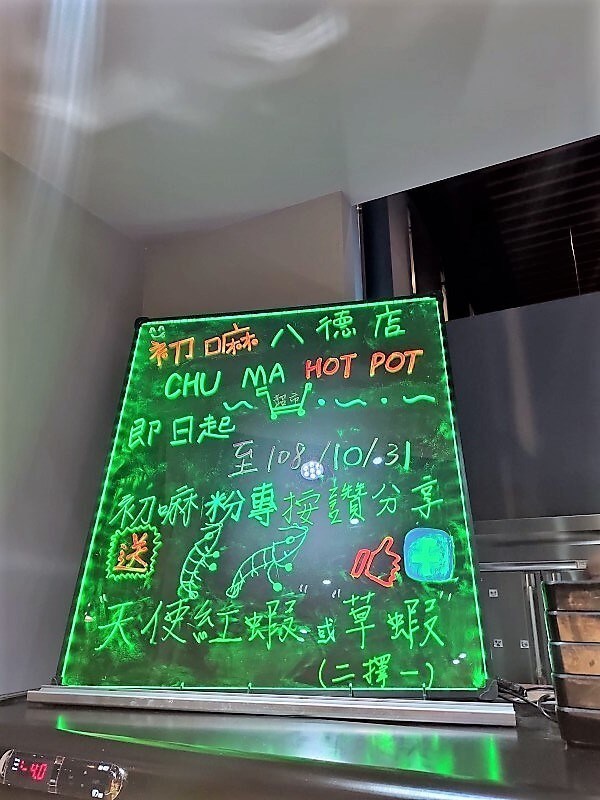 初嘛八德店
CHU MA HOT POT
超市
即日起
至108/10/31
初嘛粉專按讚分享
送
"天使紅蝦"或"草蝦"
(二擇一)
-4.0